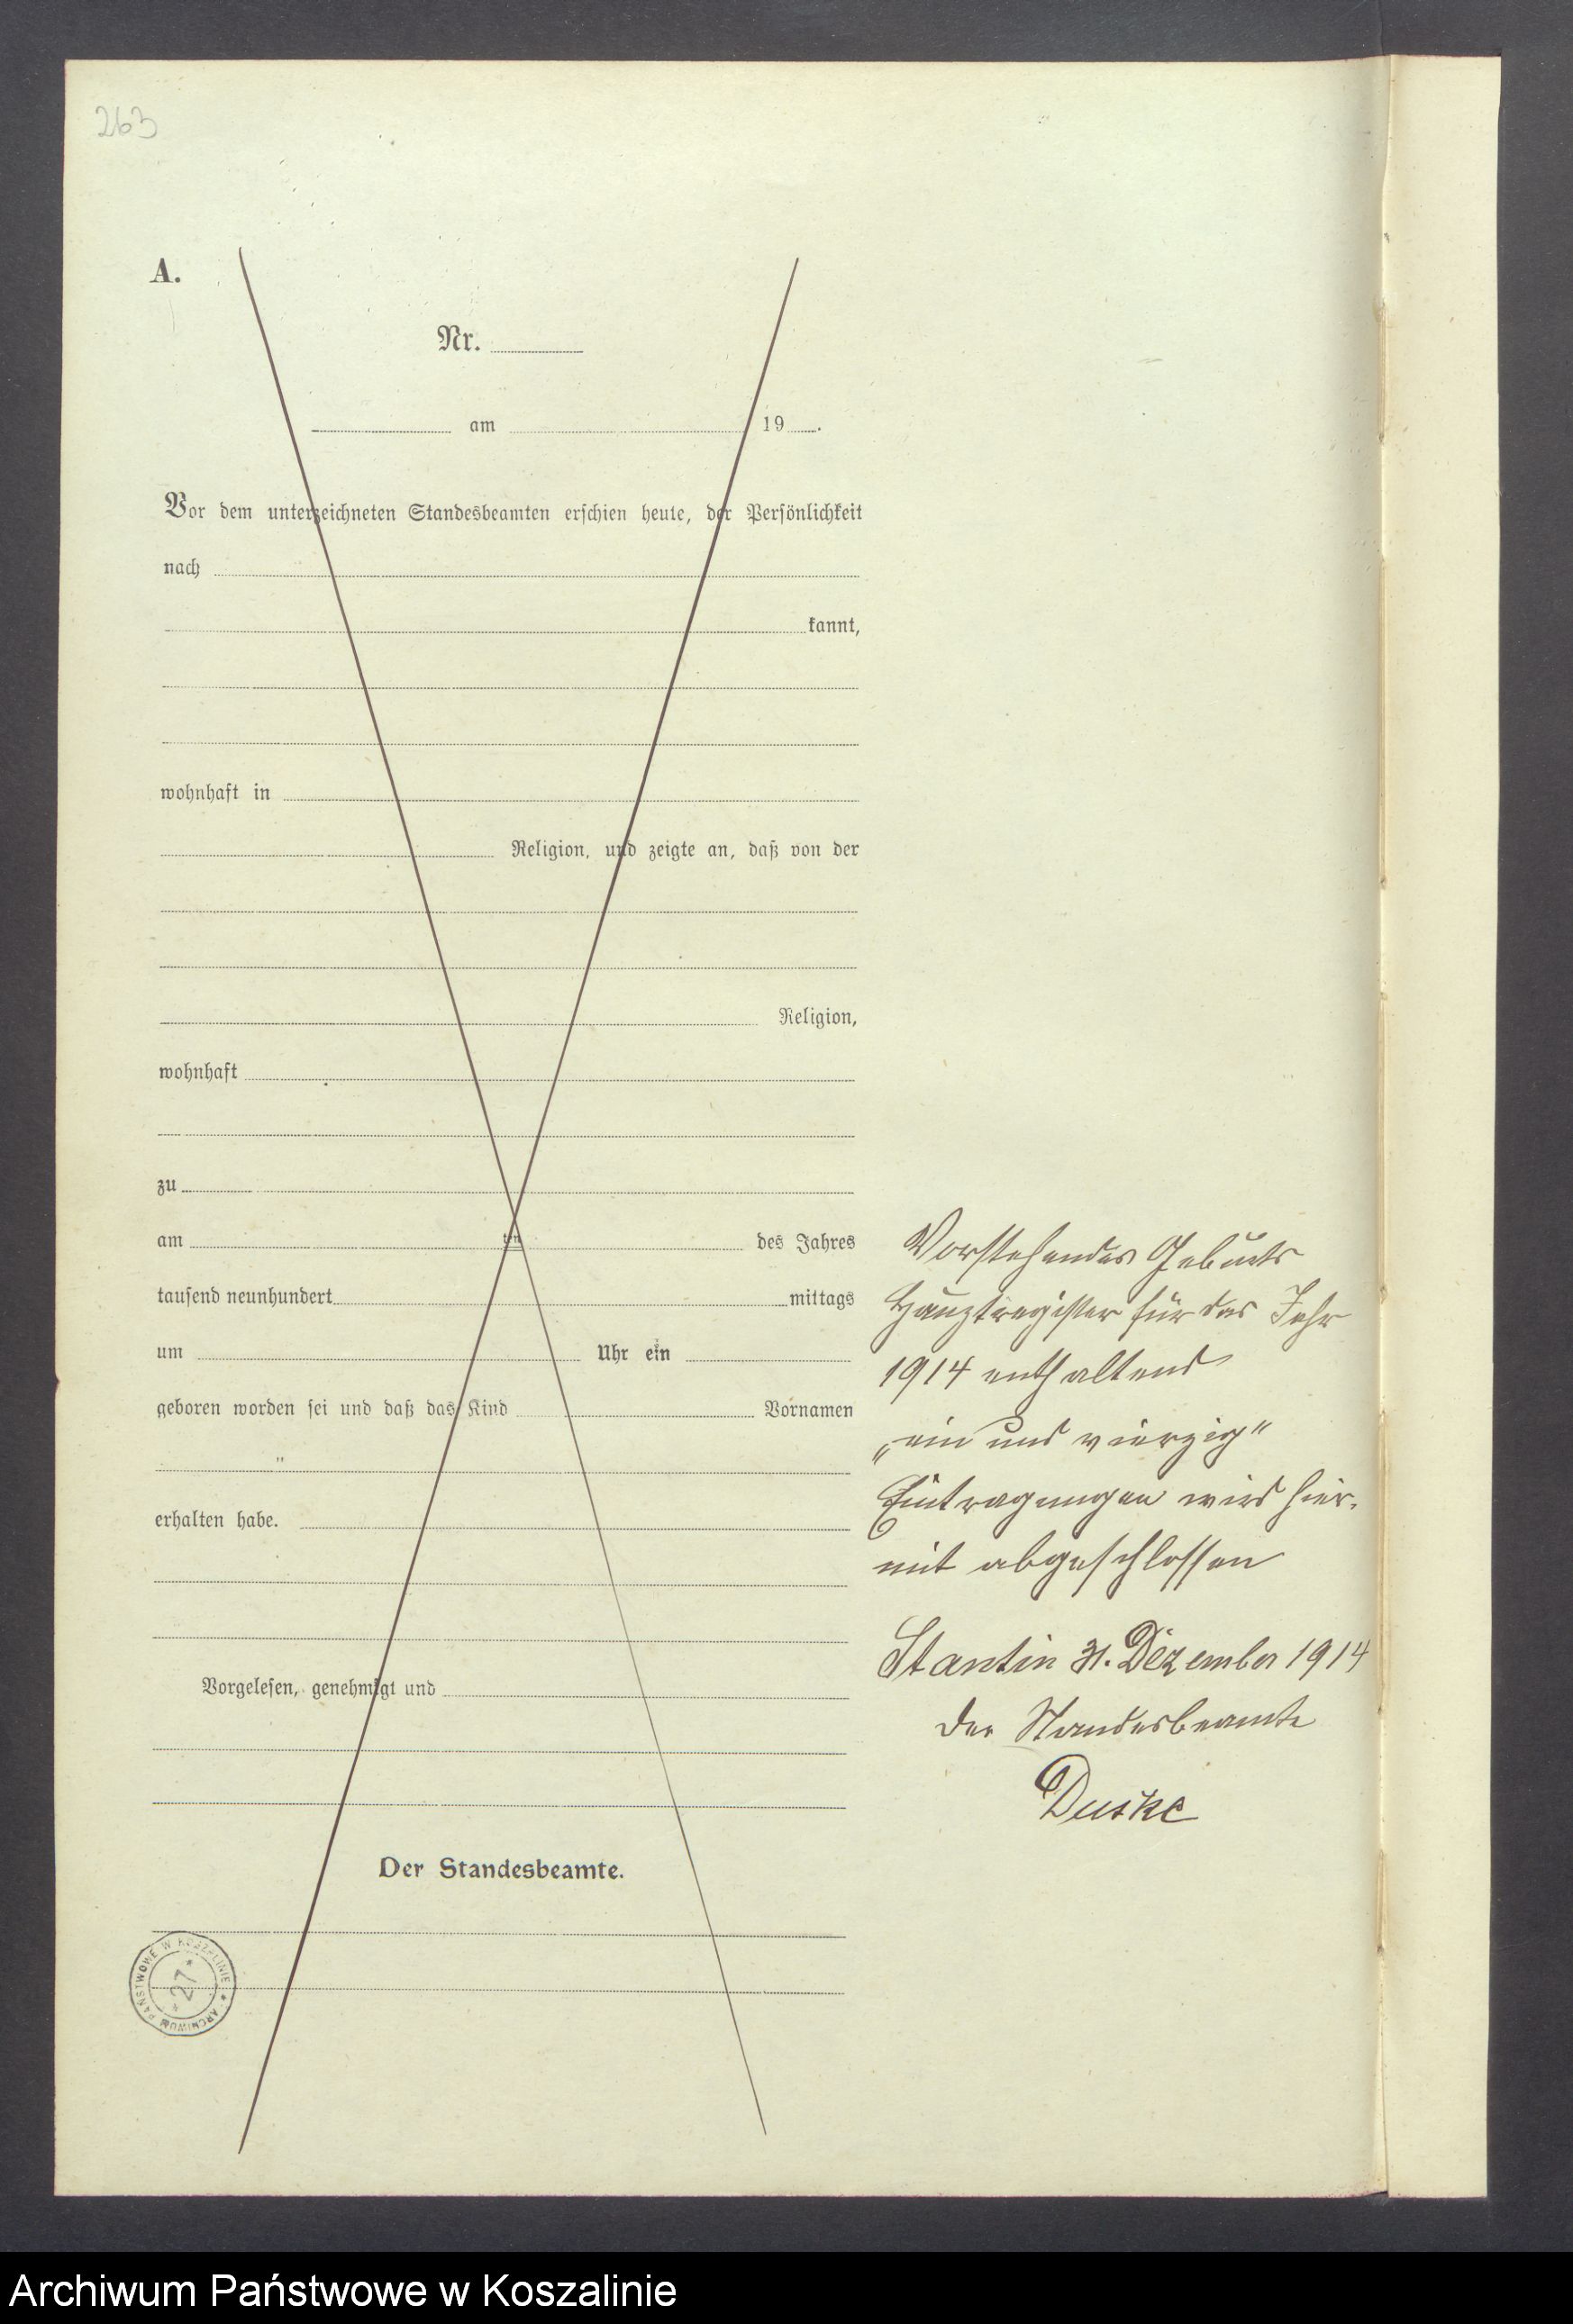 263
A.
Nr.
am 19 .
Vor dem unterzeichneten Standesbeamten erschien heute, der Persönlichkeit
nach
kannt,
wohnhaft in
Religion, und zeigte an, daß von der
Religion,
wohnhaft
zu
am ten des Jahres
tausend neunhundert mittags
um Uhr ein
geboren worden sei und daß das Kind Vornamen
erhalten habe.
Vorgelesen, genehmigt und
Der Standesbeamte.
Vorstehendes Geburts
Hauptregister für das Jahr
1914 enthaltend
„ein und vierzig"
Eintragungen wird hier-
mit abgeschlossen
Stantin 31. Dezember 1914
Der Standesbeamte
Duske
ARCHIWUM PAŃSTWOWE W KOSZALINIE
* 27 *
Archiwum Państwowe w Koszalinie